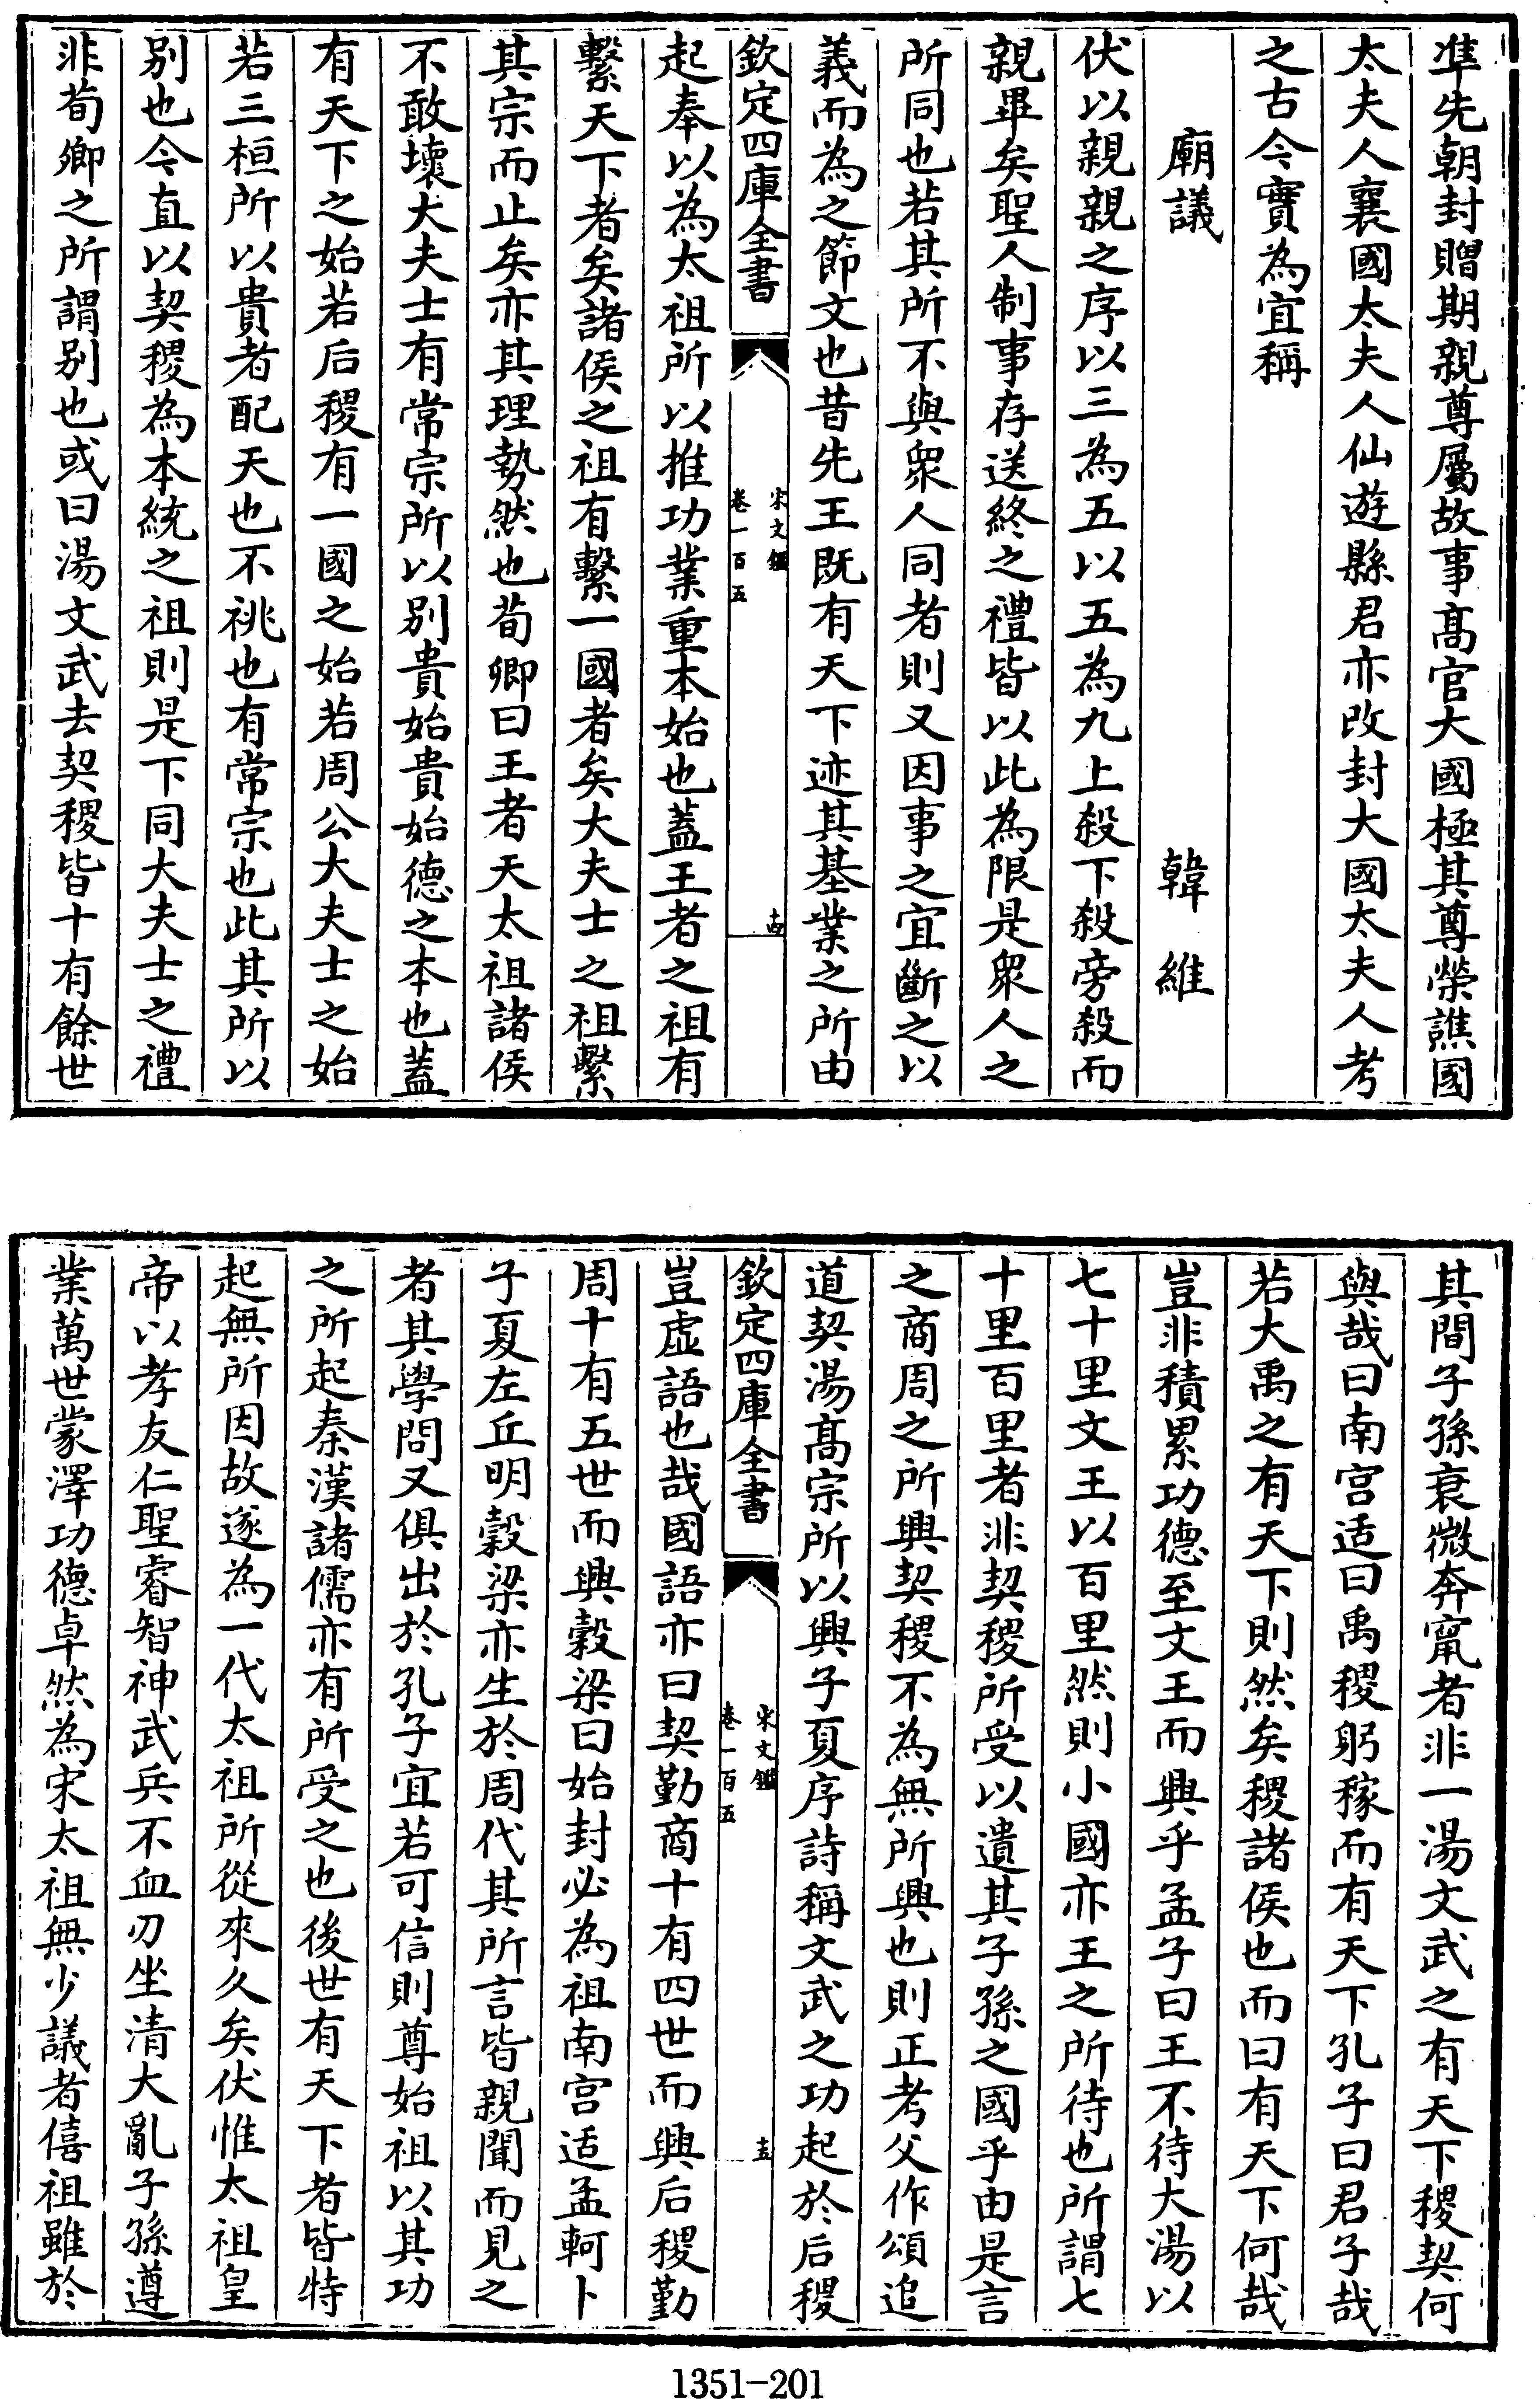 準先朝封贈期親尊屬故事髙官大國極其尊榮譙國
太夫人襄國太夫人仙遊縣君亦改封大國太夫人考
之古今實為宜稱
廟議　韓維
伏以親親之序以三為五以五為九上殺下殺旁殺而
親畢矣聖人制事存送終之禮皆以此為限是衆人之
所同也若其所不與衆人同者則又因事之宜斷之以
義而為之節文也昔先王既有天下迹其基業之所由
欽定四庫全書
宋文鑑
卷一百五
十四
起奉以為太祖所以推功業重本始也蓋王者之祖有
繫天下者矣諸侯之祖有繫一國者矣大夫士之祖繫
其宗而止矣亦其理勢然也荀卿曰王者天太祖諸侯
不敢壞大夫士有常宗所以别貴始貴始德之本也蓋
有天下之始若后稷有一國之始若周公大夫士之始
若三桓所以貴者配天也不祧也有常宗也此其所以
别也今直以契稷為本統之祖則是下同大夫士之禮
非荀卿之所謂别也或曰湯文武去契稷皆十有餘世
其間子孫衰微奔竄者非一湯文武之有天下稷契何
與哉曰南宫适曰禹稷躬稼而有天下孔子曰君子哉
若大禹之有天下則然矣稷諸侯也而曰有天下何哉
豈非積累功德至文王而興乎孟子曰王不待大湯以
七十里文王以百里然則小國亦王之所待也所謂七
十里百里者非契稷所受以遺其子孫之國乎由是言
之商周之所興契稷不為無所興也則正考父作頌追
道契湯髙宗所以興子夏序詩稱文武之功起於后稷
欽定四庫全書
宋文鑑
卷一百五
十五
豈虚語也哉國語亦曰契勤商十有四世而興后稷勤
周十有五世而興穀梁曰始封必為祖南宫适孟軻卜
子夏左丘明穀梁亦生於周代其所言皆親聞而見之
者其學問又俱出於孔子宜若可信則尊始祖以其功
之所起秦漢諸儒亦有所受之也後世有天下者皆特
起無所因故遂為一代太祖所從來久矣伏惟太祖皇
帝以孝友仁聖睿智神武兵不血刃坐清大亂子孫遵
業萬世蒙澤功德卓然為宋太祖無少議者僖祖雖於
1351-201